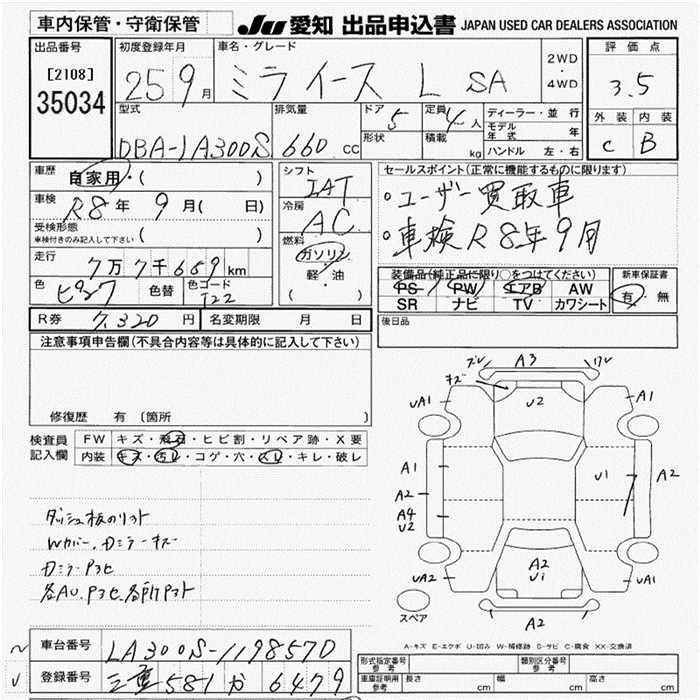 車内保管・守衛保管
JU 愛知 出品申込書 JAPAN USED CAR DEALERS ASSOCIATION
出品番号
[2108]
35034
初度登録年月
25 9月
車名・グレード
ミライース L SA
2WD
・
4WD
評価点
3.5
外装 内装
C B
型式
DBA-LA300S
排気量
660 cc
ドア 5
形状
定員 4人
積載 kg
ディーラー・並行
モデル年式 年
ハンドル 左・右
車歴
自家用・( )
車検
R8年 9月( 日)
受検形態
車検付きのみ記入して下さい ( )
走行
7万7千659km
色 ピンク
色替
色コード T22
シフト
IAT
冷房
AC
燃料
ガソリン
軽・油
( )
セールスポイント(正常に機能するものに限ります)
・ユーザー買取車
・車検R8年9月
装備品(純正品に限り○をつけてください)
PS PW エアB AW
SR ナビ TV カワシート
新車保証書
有・無
R券 7,320円
名変期限 月 日
後日品
注意事項申告欄(不具合内容等は具体的に記入して下さい)
修復歴 有 (箇所 )
検査員
記入欄
FW キズ・飛石・ヒビ割・リペア跡・X要
内装 キズ・汚レ・コゲ・穴・スレ・キレ・破レ
ダッシュ板のリフト
Wカバー、Dミラーキズ
Dミラー
ズレ A3 ワレ
キズ
UA1 U2 A1
A1
A2
A4
U2
U1
A2
UA2 A2 U1 UA1
A2
スペア
A-キズ E-エクボ U-凹み W-補修跡 S-サビ C-腐食 XX-交換済
車台番号 LA300S-1198570
登録番号 三重 581 か 6479
形式指定番号
参考
類別区分番号
参考
車庫証明用
参考
長さ cm 幅 cm 高さ cm